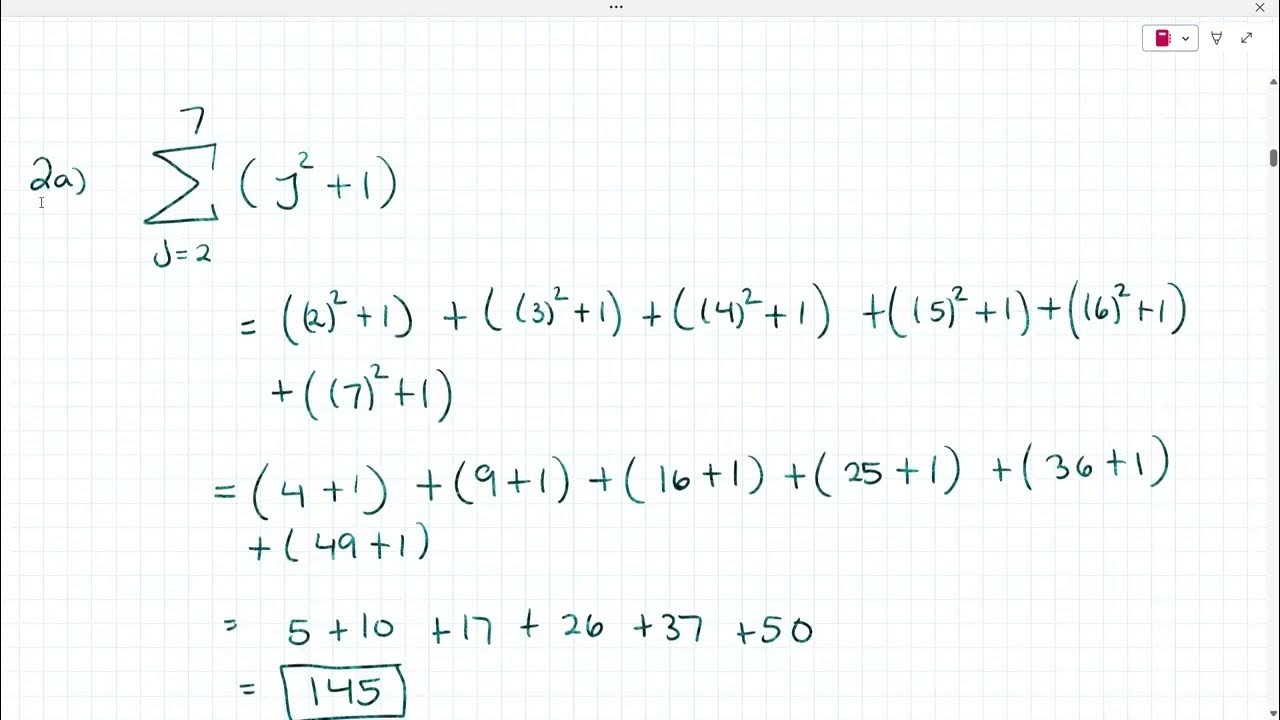 2a) 7 ∑ J=2 (J² + 1)
= ((2)² + 1) + ((3)² + 1) + ((4)² + 1) + ((5)² + 1) + ((6)² + 1)
+ ((7)² + 1)
= (4 + 1) + (9 + 1) + (16 + 1) + (25 + 1) + (36 + 1)
+ (49 + 1)
= 5 + 10 + 17 + 26 + 37 + 50
= 145